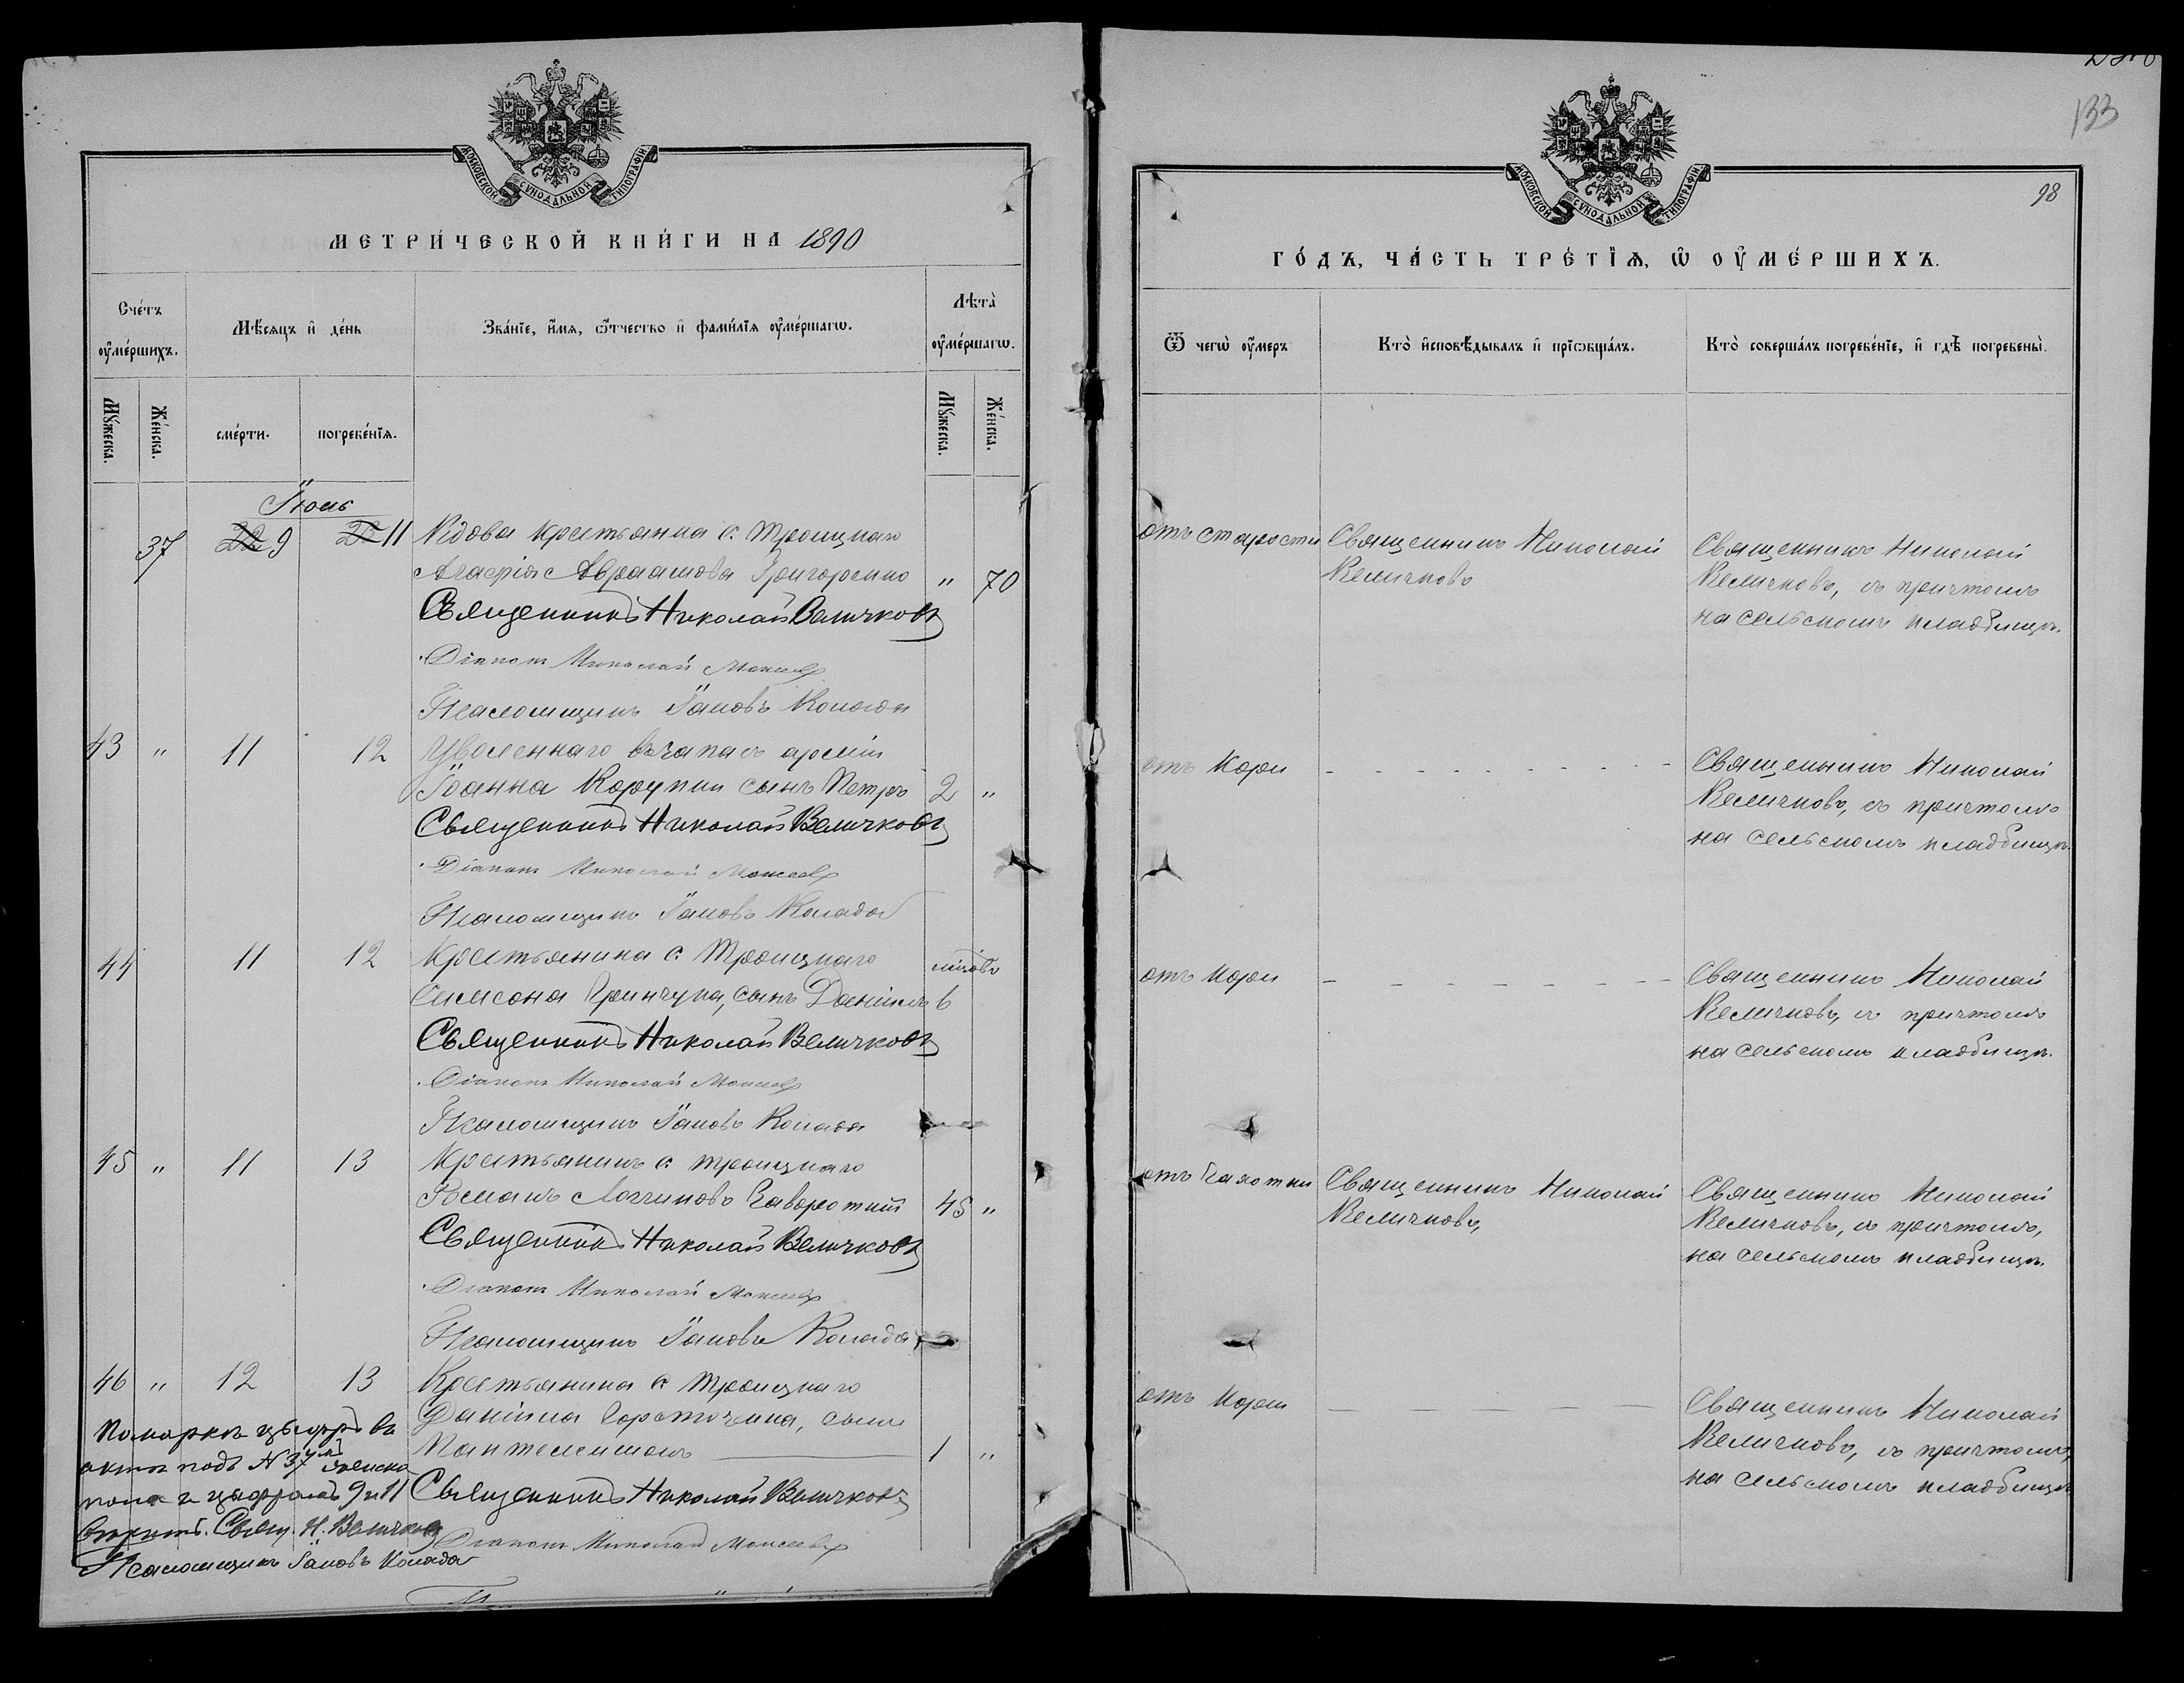 МОСКОВСКОЙ СѴНОДАЛЬНОЙ ТИПОГРАФІИ
МЕТРИ́ЧЕСКОЙ КНИ́ГИ НА 1890
Сче́тъ ᲂу҆ме́ршихъ.
Мѣ́сяцъ и҆ де́нь
Зва́нїе, и҆́мя, ѻ҆́тчество и҆ фами́лїя ᲂу҆ме́ршагѡ.
Лѣта̀ ᲂу҆ме́ршагѡ.
Мꙋ́жеска.
Же́нска.
сме́рти.
погребе́нїѧ.
Мꙋ́жеска.
Же́нска.
Іюнь
37 22 9 11 Вдова крестьянка с. Троицкаго
Агафія Авраамова Григоренко " 70
Священникъ Николай Величковъ
Діаконъ Николай Моисеевъ
Псаломщикъ Іаковъ Колада
43 " 11 12 Уволеннаго въ запасъ арміи
Іоанна Корупки сынъ Петръ 2 "
Священникъ Николай Величковъ
Діаконъ Николай Моисеевъ
Псаломщикъ Іаковъ Колада
44 11 12 Крестьянина с. Троицкаго
Симеона Гринчука, сынъ Даніилъ 6
Священникъ Николай Величковъ
Діаконъ Николай Моисеевъ
Псаломщикъ Іаковъ Колада
45 " 11 13 Крестьянинъ с. Троицкаго
Романъ Логгиновъ Заворотній 45 "
Священникъ Николай Величковъ
Діаконъ Николай Моисеевъ
Псаломщикъ Іаковъ Колада
46 " 12 13 Крестьянина с. Троицкаго
Даніила сынъ
Пантелеимонъ 1 "
Священникъ Николай Величковъ
Діаконъ Николай Моисеевъ
актѣ подъ N 37 женска
пола и цыфрамъ 9 и 11
Свящ. Н. Величковъ
Псаломщикъ Іаковъ Колада
133
98
МОСКОВСКОЙ СѴНОДАЛЬНОЙ ТИПОГРАФІИ
ГО́ДЪ, ЧА́СТЬ ТРЕ́ТЇѦ, Ѡ҆ ОУ҆МЕ́РШИХЪ.
Ѿ чегѡ̀ ᲂу҆́меръ
Кто̀ и҆сповѣ́дывалъ и҆ прїѡбща́лъ.
Кто̀ соверша́лъ погребе́нїе, и҆ гдѣ̀ погребены̀.
отъ старости Священникъ Николай Величковъ
Священникъ Николай
Величковъ, съ причтомъ
на сельскомъ кладбищѣ.
отъ Кори
Священникъ Николай
Величковъ, съ причтомъ
на сельскомъ кладбищѣ.
отъ Кори
Священникъ Николай
Величковъ, съ причтомъ
на сельскомъ кладбищѣ.
отъ Чахотки Священникъ Николай Величковъ,
Священникъ Николай
Величковъ, съ причтомъ,
на сельскомъ кладбищѣ.
отъ Кори
Священникъ Николай
Величковъ, съ причтомъ,
на сельскомъ кладбищѣ